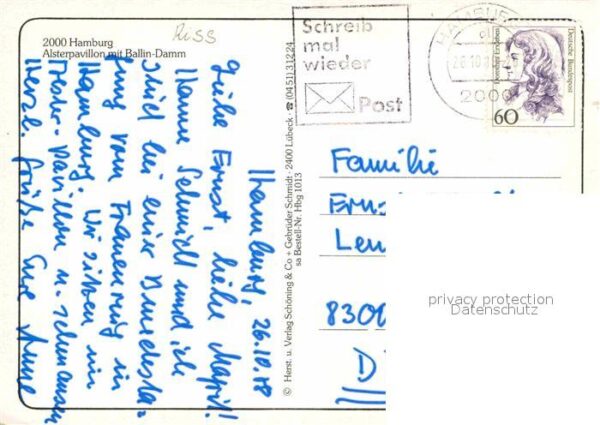 Riss
2000 Hamburg
Alsterpavillon mit Ballin-Damm
Schreib
mal
wieder
Post
HAMBURG
26.10
2000
Dorothea Erxleben
Deutsche Bundespost
60
© Herst. u. Verlag Schöning & Co + Gebrüder Schmidt · 2400 Lübeck · ☎ (0451) 31224
sa Bestell-Nr. Hbg 1013
Hamburg, 26.10.88
Liebe Ernst, liebe
Hanne Schmidt und ich
sind bei einer Bundesta-
gung vom Frauenring in
Hamburg. Wir sitzen im
Pavillon u. schmausen
Herzl. Grüße Eure Anne
Familie
Erns
Len
830
D
privacy protection
Datenschutz